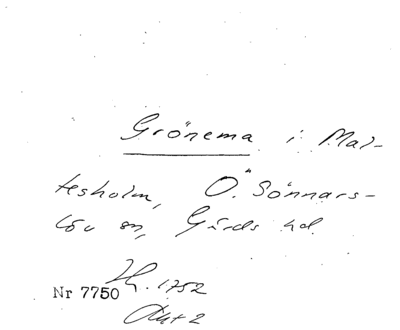 Grönema i Mal-
tesholm, Ö. Sönnars-
löv sn, Gärds hd.
1752
Nr 7750
Akt 2